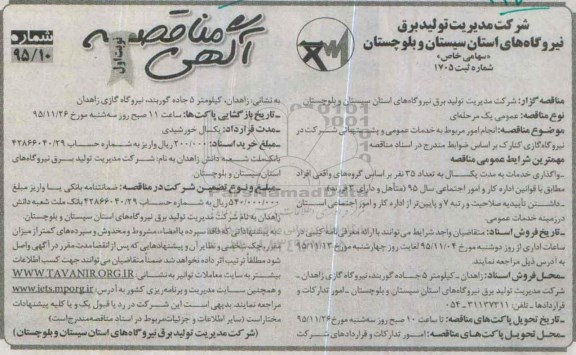 شرکت مدیریت تولید برق
نیروگاه‌های استان سیستان و بلوچستان
«سهامی خاص»
شماره ثبت ۱۷۰۵
آگهی مناقصه
نوبت اول
شماره
۹۵/۱۰
مناقصه گزار: شرکت مدیریت تولید برق نیروگاه‌های استان سیستان و بلوچستان
نوع مناقصه: عمومی یک مرحله‌ای
موضوع مناقصه: انجام امور مربوط به خدمات عمومی و پشتیبانی شرکت در
نیروگاه گازی کنارک بر اساس ضوابط مندرج در اسناد مناقصه
مهمترین شرایط عمومی مناقصه
_واگذاری خدمات به مدت یکسال به تعداد ۳۵ نفر بر اساس گروه‌های واقعی افراد
مطابق با قوانین اداره کار و امور اجتماعی سال ۹۵ (متأهل و دارای
_داشتن تأییدیه صلاحیت و رتبه ۷ و پایین‌تر از اداره کار و امور اجتماعی استان
در زمینه خدمات عمومی
_تاریخ فروش اسناد: متقاضیان واجد شرایط می‌توانند با ارائه معرفی نامه کتبی در
ساعات اداری از روز دوشنبه مورخ ۹۵/۱۱/۰۴ لغایت روز چهارشنبه مورخ ۹۵/۱۱/۱۳
به آدرس ذیل مراجعه نمایند.
_محل فروش اسناد: زاهدان _ کیلومتر ۵ جاده گوربند، نیروگاه گازی زاهدان _
شرکت مدیریت تولید برق نیروگاه‌های استان سیستان و بلوچستان _ امور تدارکات و
قراردادها _ تلفن: ۳۱۱۳۷۲۱۱ _۰۵۴
_تاریخ تحویل پاکت‌های مناقصه: تا ساعت ۱۰ صبح روز سه‌شنبه مورخ ۹۵/۱۱/۲۶
_محل تحویل پاکت‌های مناقصه: امور تدارکات و قراردادهای شرکت
به نشانی: زاهدان، کیلومتر ۵ جاده گوربند، نیروگاه گازی زاهدان
_تاریخ بازگشایی پاکت‌ها: ساعت ۱۱ صبح روز سه‌شنبه مورخ ۹۵/۱۱/۲۶
_مدت قرارداد: یکسال خورشیدی
_مبلغ خرید اسناد: ۲۰۰/۰۰۰ ریال واریز به شماره حساب ۴۲۸۶۶۰۴۰/۲۹
بانک ملت شعبه دانش زاهدان به نام: شرکت مدیریت تولید برق نیروگاه‌های
استان سیستان و بلوچستان.
_مبلغ و نوع تضمین شرکت در مناقصه: ضمانتنامه بانکی یا واریز مبلغ
۵۴۰/۰۰۰/۰۰۰ ریال به شماره حساب ۴۲۸۶۶۰۴۰/۲۹ بانک ملت شعبه دانش
زاهدان به نام شرکت مدیریت تولید برق نیروگاه‌های استان سیستان و بلوچستان.
_به پیشنهاداتی که فاقد سپرده یا امضاء، مشروط و مخدوش و سپرده‌های کمتر از میزان
مقرر، چک شخصی و نظایر آن و پیشنهادهایی که پس از انقضاء مدت مقرر در آگهی واصل
شود مطلقاً ترتیب اثر داده نخواهد شد ضمناً متقاضیان می‌توانند جهت کسب اطلاعات
بیشتر به سایت معاملات توانیر به نشانی: WWW.TAVANIR.ORG.IR
و همچنین سایت مدیریت و برنامه‌ریزی کشور به آدرس: www.iets.mporg.ir
مراجعه نمایند. بدیهی است این شرکت در رد یا قبول یک و یا کلیه پیشنهادات
مختار است (سایر اطلاعات و جزئیات مربوط در اسناد مناقصه مندرج است)
(شرکت مدیریت تولید برق نیروگاه‌های استان سیستان و بلوچستان)